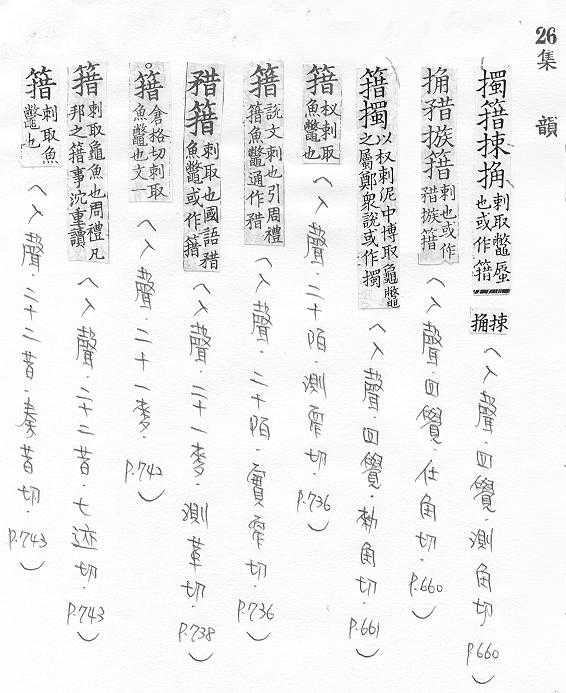 26
集韻
擉簎捒捔刺取鼈蜃也或作籍捒捔(入聲·四覺·測角切 p.660)
捔矠族簎刺也或作矠族簎(入聲·四覺·仕角切·p.660)
簎擉以杈刺泥中博取龜鼈之屬鄭衆說或作擉(入聲·四覺·勑角切·p.661)
簎杈刺取魚鼈也(入聲·二十陌·測窄切·p.736)
簎說文刺也引周禮簎魚鼈通作矠(入聲·二十陌·實窄切·p.736)
矠簎刺取也國語矠魚鼈或作簎(入聲·二十一麥·測革切·p.738)
簎倉格切刺取魚鼈也文一(入聲·二十一麥·p.742)
簎刺取龜魚也周禮凡邦之簎事沈重讀(入聲·二十二昔·七迹切·p.743)
簎刺取魚鼈也(入聲·二十二昔·秦昔切·p.743)